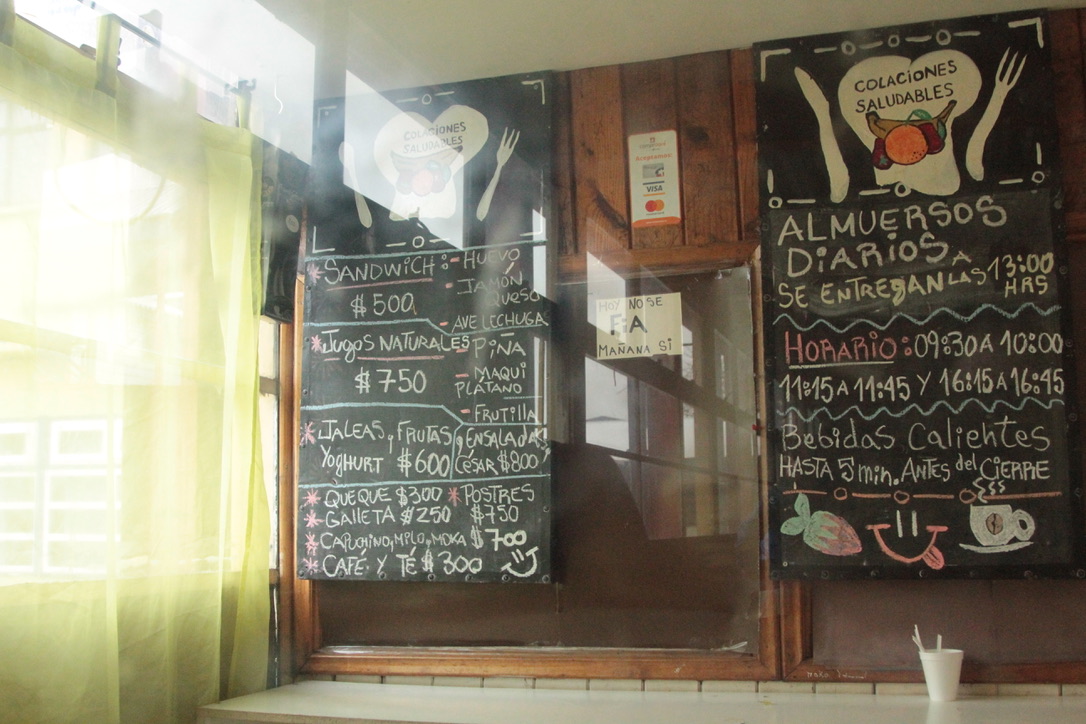 COLACIONES
SALUDABLES
* SANDWICH: - HUEVO
$500 JAMÓN
QUESO
- AVE LECHUGA
* JUGOS NATURALES - PIÑA
$750 - MAQUI
PLATANO
- FRUTILLA
* JALEAS, FRUTAS
YOGHURT $600
ENSALADAS
CÉSAR $800
* QUEQUE $300 * POSTRES
* GALLETA $250 $750
* CAPUCHINO, MPLO, MOKA $700
* CAFÉ Y TÉ $300
Aceptamos:
VISA
HOY NO SE
FíA
MAÑANA SI
COLACIONES
SALUDABLES
ALMUERSOS
DIARIOS A
SE ENTREGAN LAS 13:00
HRS
HORARIO: 09:30 A 10:00
11:15 A 11:45 Y 16:15 A 16:45
Bebidas Calientes
HASTA 5 min. ANTES del CIERRE